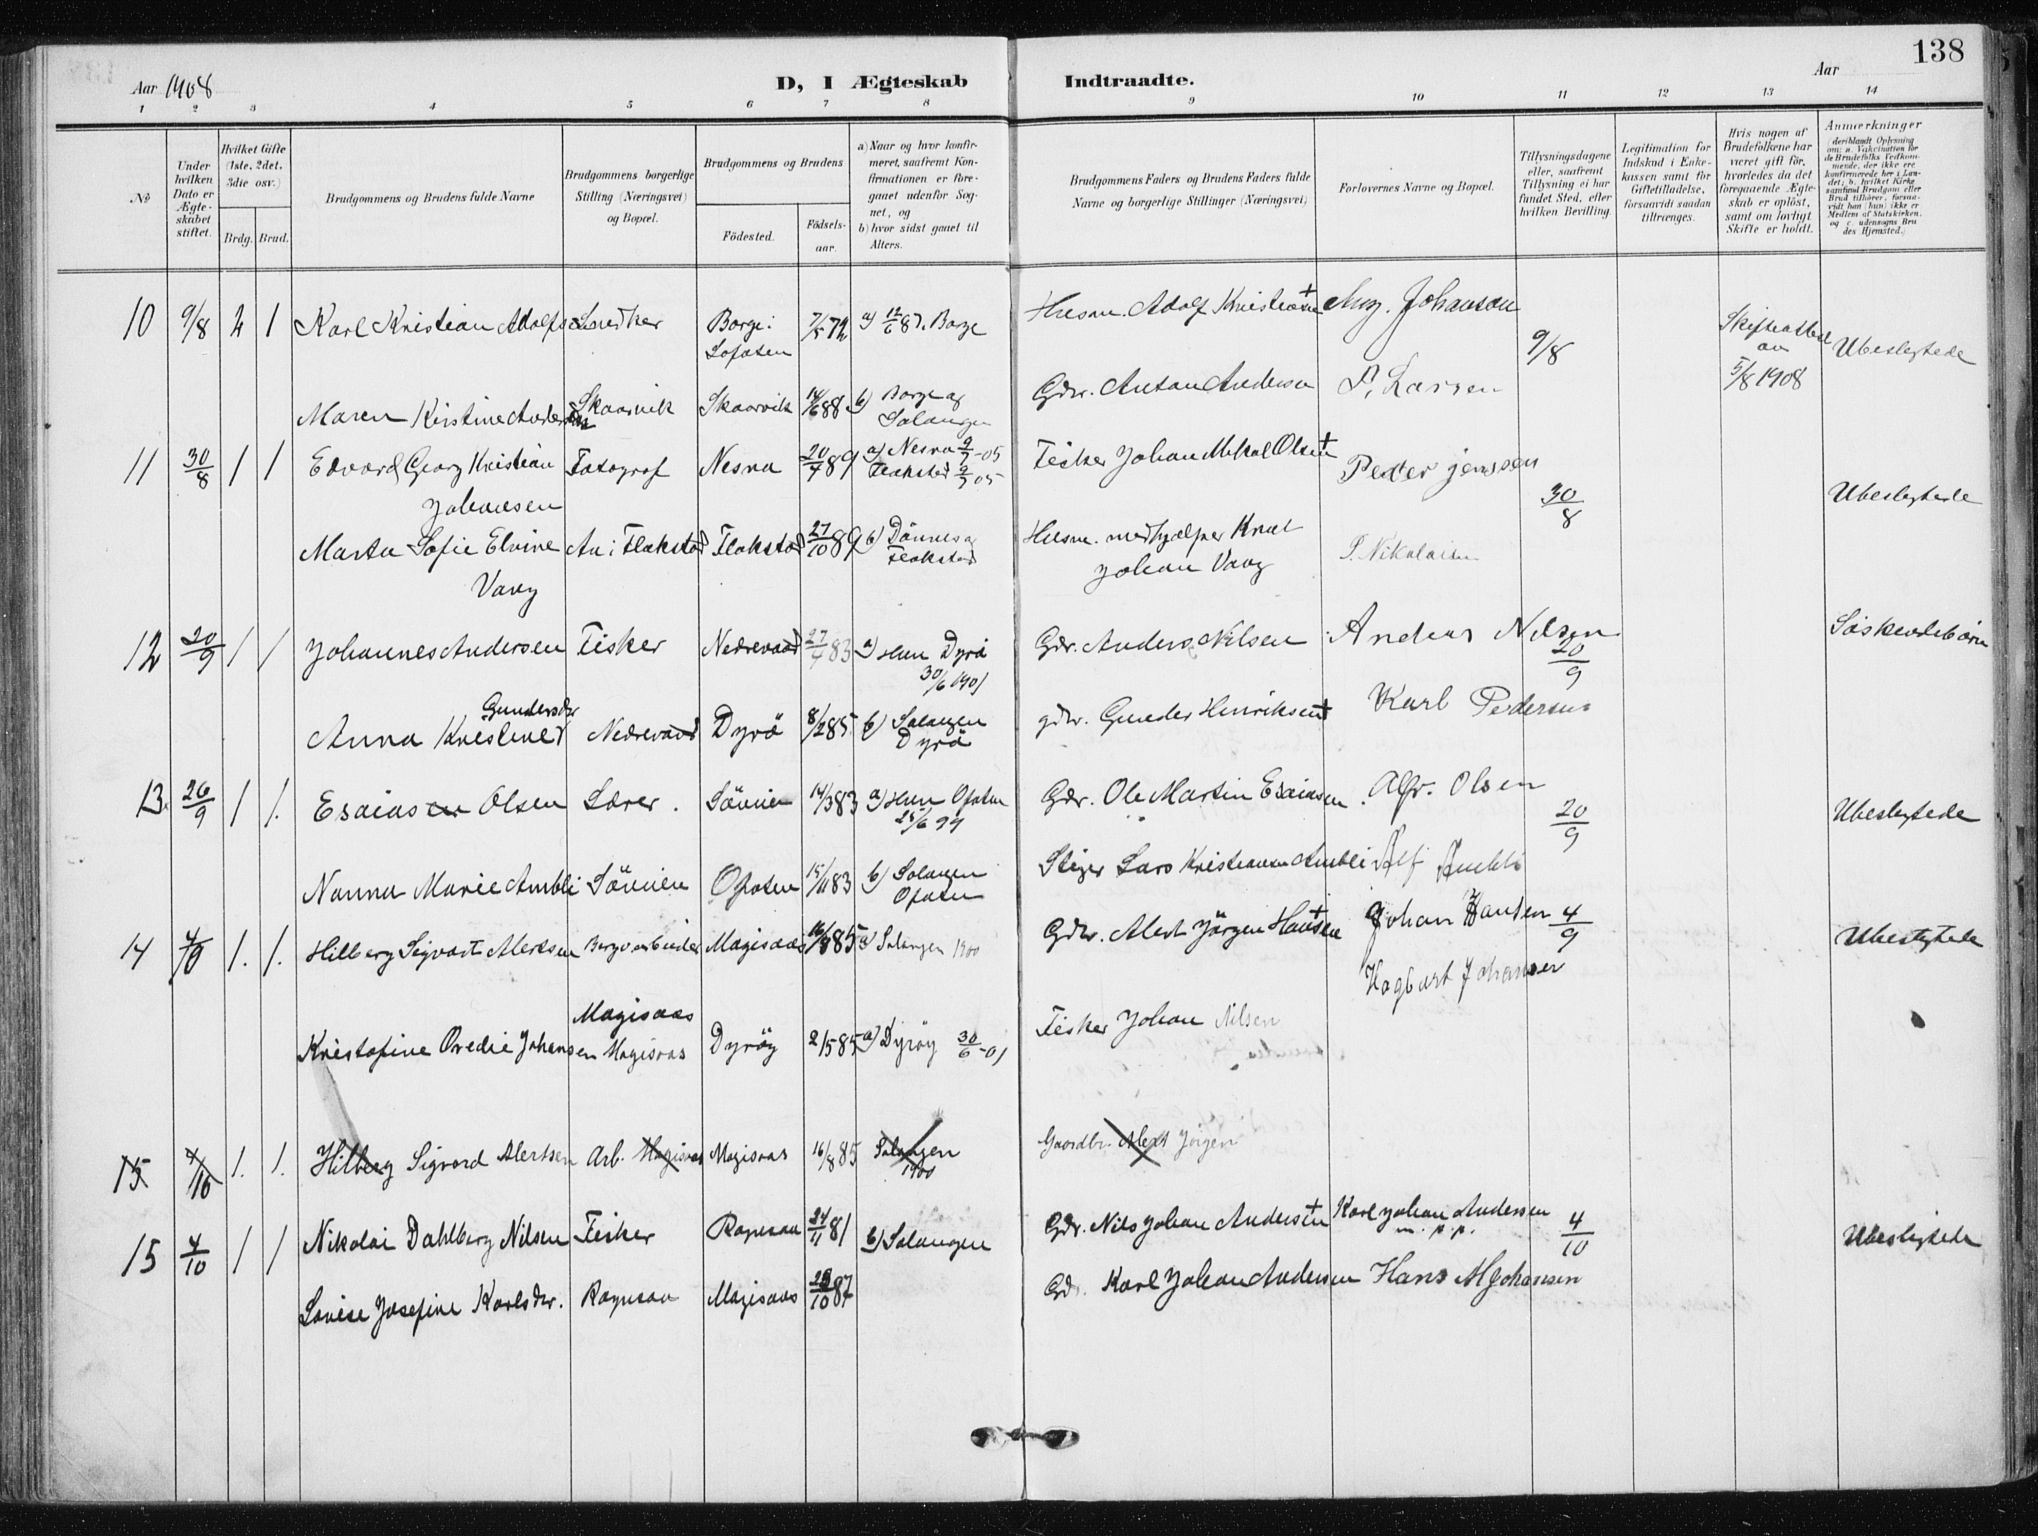 138
Aar 1908
D, I Ægteskab Indtraadte.
Aar
1 2 3 4 5 6 7 8 9 10 11 12 13 14
No
Under hvilken Dato er Ægteskabet stiftet.
Hvilket Gifte (1ste, 2det, 3die osv.)
Brdg. Brud.
Brudgommens og Brudens fulde Navne
Brudgommens borgerlige Stilling (Næringsvei) og Bopæl.
Brudgommens og Brudens
Fødested.
Fødselsaar.
a) Naar og hvor konfirmeret, saafremt Konfirmationen er foregaaet udenfor Sognet, og
b) hvor sidst gaaet til Alters.
Brudgommens Faders og Brudens Faders fulde Navne og borgerlige Stillinger (Næringsvei)
Forlovernes Navne og Bopæl.
Tillysningsdagene eller, saafremt Tillysning ei har fundet Sted, efter hvilken Bevilling.
Legitimation for Indskud i Enkekassen samt for Giftetilladelse, forsaavidt saadan tiltrænges.
Hvis nogen af Brudefolkene har været gift før, hvorledes da det foregaaende Ægteskab er opløst, samt om lovligt Skifte er holdt.
Anmærkninger
(deriblandt Oplysning om: a. Vakcination for de Brudefolks Vedkommende, der ikke ere konfirmerede her i Landet; b. hvilket Kirkesamfund Brudgom eller Brud tilhører, forsaavidt han (hun) ikke er Medlem af Statskirken, og c. udensogns Brudes Hjemsted.)
10 9/8 2 1 Karl Kristian Adolfs Snedker Borge i Lofoten 7/5 72 a) 12/6 87. Borge Husm. Adolf Kristiansen + Aug. Johansen 9/8 Skifteattest av 5/8 1908 Ubeslegtede
Maren Kirstine Andersen Skaarvik Skaarvik 14/6 88 b) Borge og Salangen Gdr. Anton Andersen P. Larsen
11 30/8 1 1 Edvard Georg Kristian Johansen Fotograf Nesna 20/7 89 a) Nesna 9/7-05 Flakstad 2/7 05 Fisker Johan Mikal Olsen + Peder Jenssen 30/8 Ubeslegtede
Marta Sofie Elvine Vaag Aa i Flakstad Flakstad 27/10 89 b) Dønnes og Flakstad Husm. medhjælper Knut Johan Vaag P. Nikolaisen
12 20/9 1 1 Johannes Andersen Fisker Nedrevaad 27/7 83 a) Hun Dyrø 30/6 1901 Gdr. Anders Nilsen Andreas Nilsen 20/9 Søskendebørn
Anna Kristine Gundersdr Nedrevaad Dyrø 8/2 85 b) Salangen Dyrø gdr. Gunder Henriksen + Karl Pedersen
13. 26/9 1 1. Esaias Olsen Lærer. Løvlien 14/3 83 a) Hun Ofoten 25/6 99 Gdr. Ole Martin Esaiasen. Alfr. Olsen 20/9 Ubeslegtede
Nanna Marie Ambli Løvlien Ofoten 15/11 83 b) Salangen Ofoten Stiger Lars Kristiansen Ambli Alf Ambli
14 4/10 1. 1. Hilberg Sigvart Alertsen Bergarbeider Magisaas 16/8 85 a) Salangen 1900 Gdr. Alert Jørgen Hansen + Johan Hansen 4/9 Ubeslegtede
Hagbart Johansen
Magisaas
Kristofine Ovedie Johansen Magisaas Dyrøy 2/5 85 a) Dyrøy 30/6-01 Fisker Johan Nilsen
15 4/10 1. 1. Hilberg Sigvard Alertsen Arb. Magisaas Magisaas 16/8 85 Salangen 1900 Gaardbr. Alert Jørgen
15 4/10 1 1 Nikolai Dahlberg Nilsen Fisker Rapesaa 24/11 81 b) Salangen Gdr. Nils Johan Andersen + Karl Johan Andersen m. p. p. 4/10 Ubeslegtede
Lovise Josefine Karlsdr. Rapesaa Magisaas 23/10 87 Gdr. Karl Johan Andersen Hans M Johansen